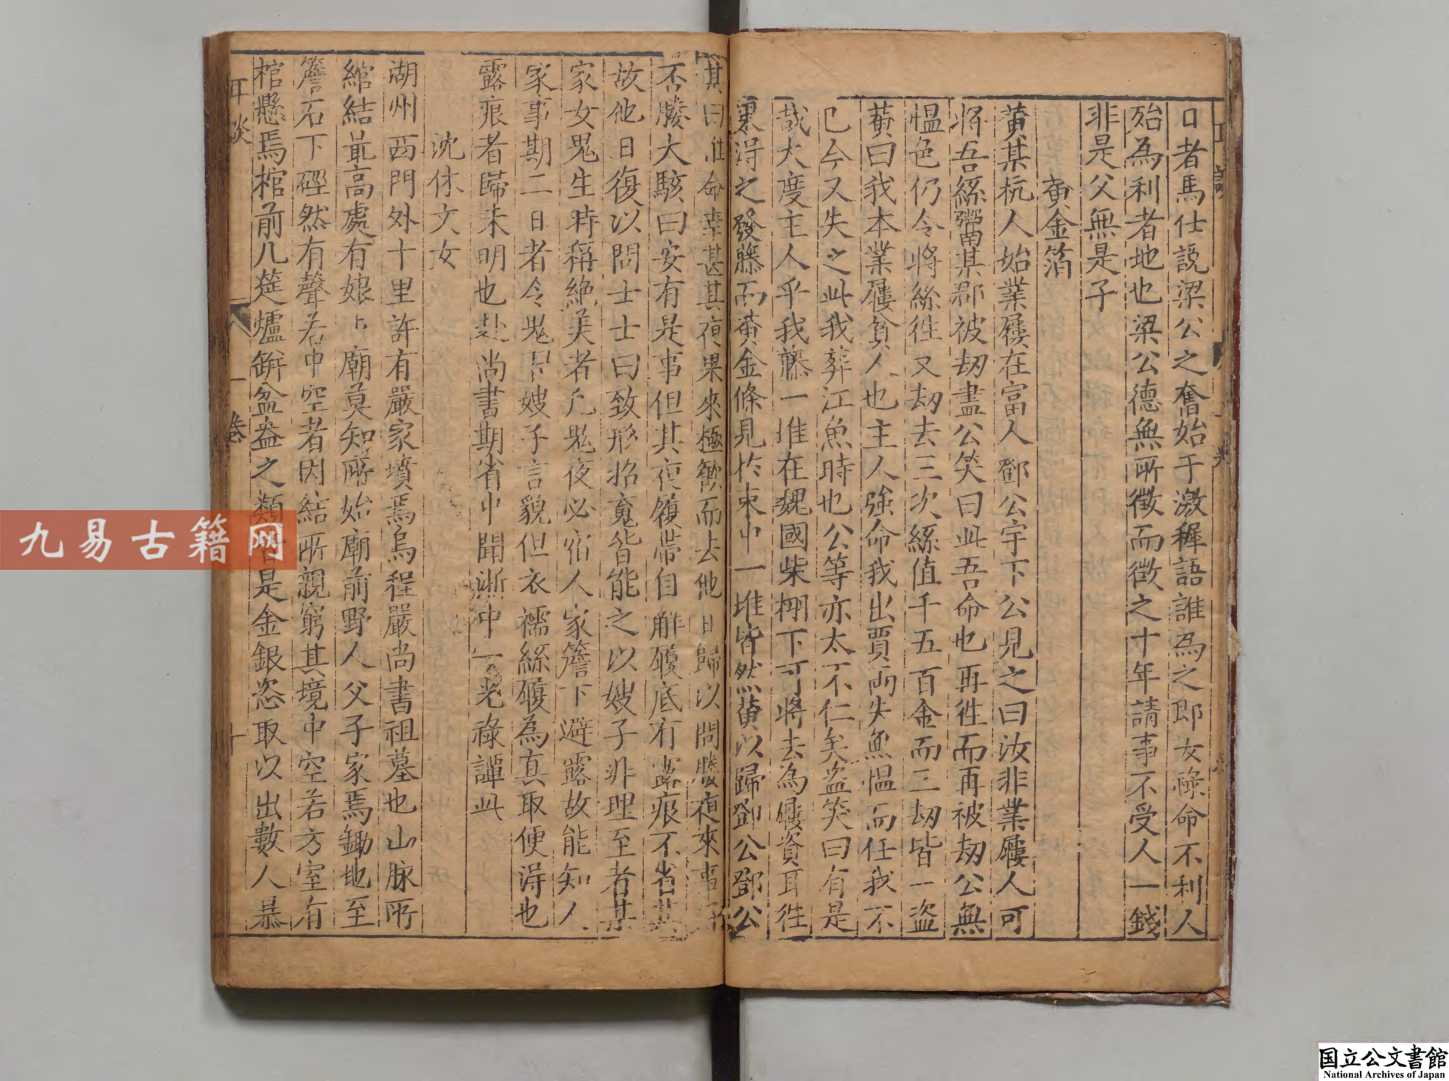 日者馬仕說梁公之奮始于激穉語誰為之即女祿命不利人
殆為利者地也梁公德無所徵而徵之十年請事不受人一錢
非是父無是子
黃金箔
黃某杭人始業屨在富人鄧公宇下公見之曰汝非業屨人可
將吾絲鬻南某郡被刼盡公笑曰此吾命也再徃而再被刼公無
慍色仍令將絲徃又刼去三次絲值千五百金而三刼皆一盜
黃曰我本業屨貧人也主人強命我出賈兩失無慍而任我不
已今又失之此我葬江魚時也公等亦太不仁矣盜笑曰有是
哉大度主人乎我藤一堆在魏國柴棚下可將去為屨資耳徃
裏淂之發藤而黃金條見扵束中一堆皆然黃以歸鄧公鄧公
其曰 命幸甚其夜果來極歡而去他日歸以問 夜來事
否 大駭曰安有是事但其夜履帶自解履底有露痕不省其
故他日復以問士士曰致形招䰟皆能之以嫂子非理至者某
家女鬼生時稱絶美者凢鬼夜必宿人家簷下避露故能知人
家事期二日者令鬼 嫂子言貌但衣襦絲履為真取便淂也
露痕者歸未明也赴尚書期省中聞浙中一光祿譚此
沈休文女
湖州西門外十里許有嚴家墳焉烏程嚴尚書祖墓也山脉所
綰結最高處有娘娘廟莫知所始廟前野人父子家焉鋤地至
簷石下硜然有聲若中空者因結所親窮其境中空若方室有
棺懸焉棺前几筵爐缾盆盎之類皆是金銀恣取以出數人暴
耳談
卷一
十
九易古籍网
国立公文書館
National Archives of Japan